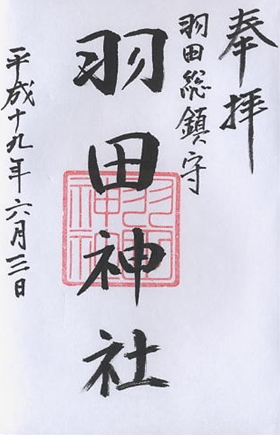 奉拝
羽田総鎮守
羽田神社
羽田神社
平成十九年六月三日